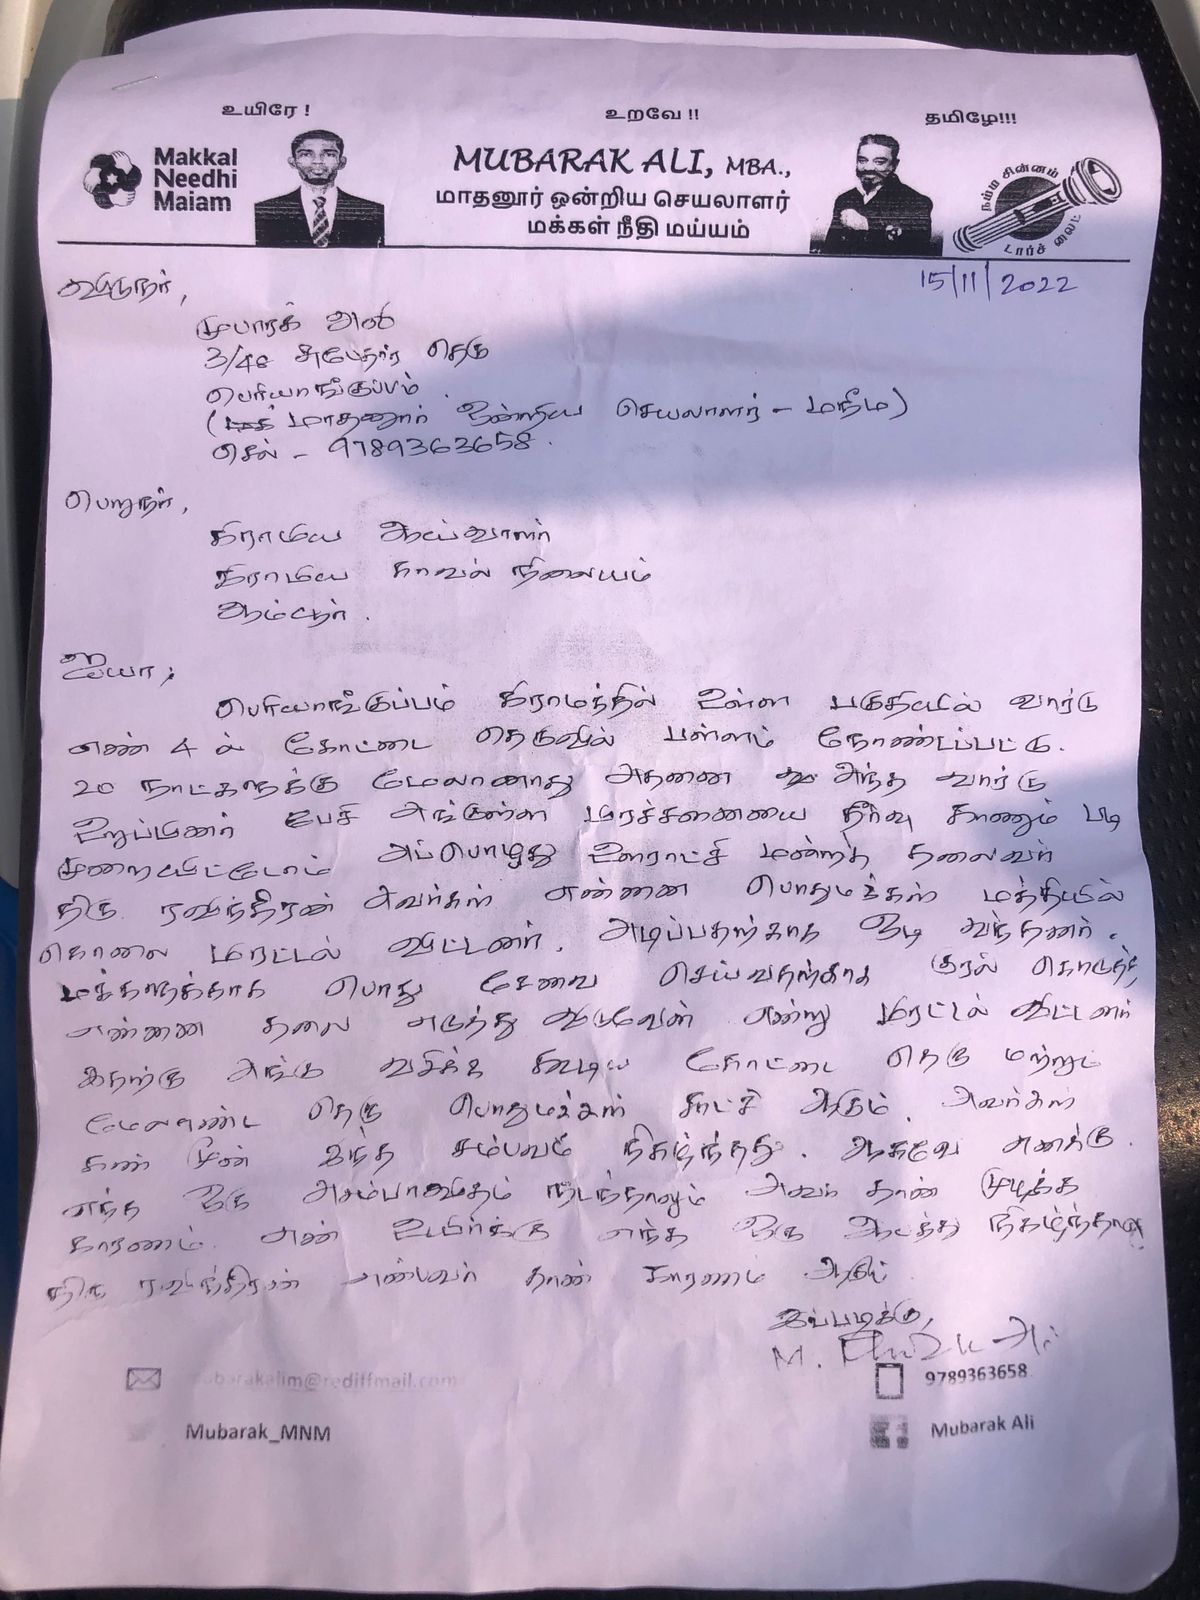 உயிரே ! உறவே !! தமிழே!!!
Makkal
Needhi
Maiam
MUBARAK ALI, MBA.,
மாதனூர் ஒன்றிய செயலாளர்
மக்கள் நீதி மய்யம்
நம்ம சின்னம்
டார்ச் லைட்
15/11/2022
விடுநர்,
முபாரக் அலி
3/48 சுபேதார் தெரு
பெரியாங்குப்பம்
( மாதனூர் ஒன்றிய செயலாளர் - மநீம)
செல் - 9789363658.
பெறுநர்,
கிராமிய ஆய்வாளர்
கிராமிய காவல் நிலையம்
ஆம்பூர்.
ஐயா;
பெரியாங்குப்பம் கிராமத்தில் உள்ள பகுதியில் வார்டு
எண் 4 ல் கோட்டை தெருவில் பள்ளம் தோண்டப்பட்டு.
20 நாட்களுக்கு மேலானாது அதனை அந்த வார்டு
உறுப்பினர் பேசி அங்குள்ள பிரச்சனையை தீர்வு காணும் படி
முறையிட்டோம் அப்பொழுது ஊராட்சி மன்றத் தலைவர்
திரு ரவிந்திரன் அவர்கள் என்னை பொதுமக்கள் மத்தியில்
கொலை மிரட்டல் விட்டனர். அடிப்பதற்காக ஓடி வந்தனர்.
மக்களுக்காக பொது சேவை செய்வதற்காக குரல் கொடுத்த
என்னை தலை அடுத்து விடுவேன் என்று மிரட்டல் விட்டனர்
இதற்கு அங்கு வசிக்க கூடிய கோட்டை தெரு மற்றும்
மேலாண்ட தெரு பொதுமக்கள் சாட்சி ஆகும். அவர்கள்
கண் முன் இந்த சம்பவம் நிகழ்ந்தது. ஆகவே எனக்கு
எந்த ஒரு அசம்பாவிதம் நடந்தாலும் அவர் தான் முழுக்க
காரணம். என் உயிர்க்கு எந்த ஒரு ஆபத்து நிகழ்ந்தால்
திரு ரவிந்திரன் என்பவர் தான் காரணம் ஆகும்
இப்படிக்கு,
M.
ubarakalim@rediffmail.com
9789363658
Mubarak_MNM
Mubarak Ali